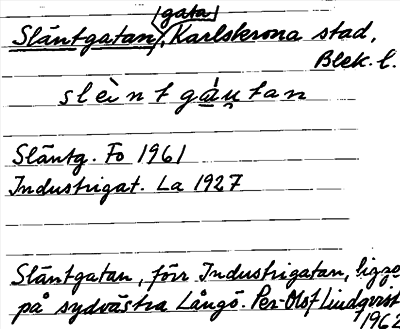 [gata]
Släntgatan, Karlskrona stad,
Blek. l.
slèntgátan
Släntg. Fo 1961
Industrigat. La 1927
Släntgatan, förr Industrigatan, ligger
på sydvästra Långö. Per-Olof Lindqvist
1962